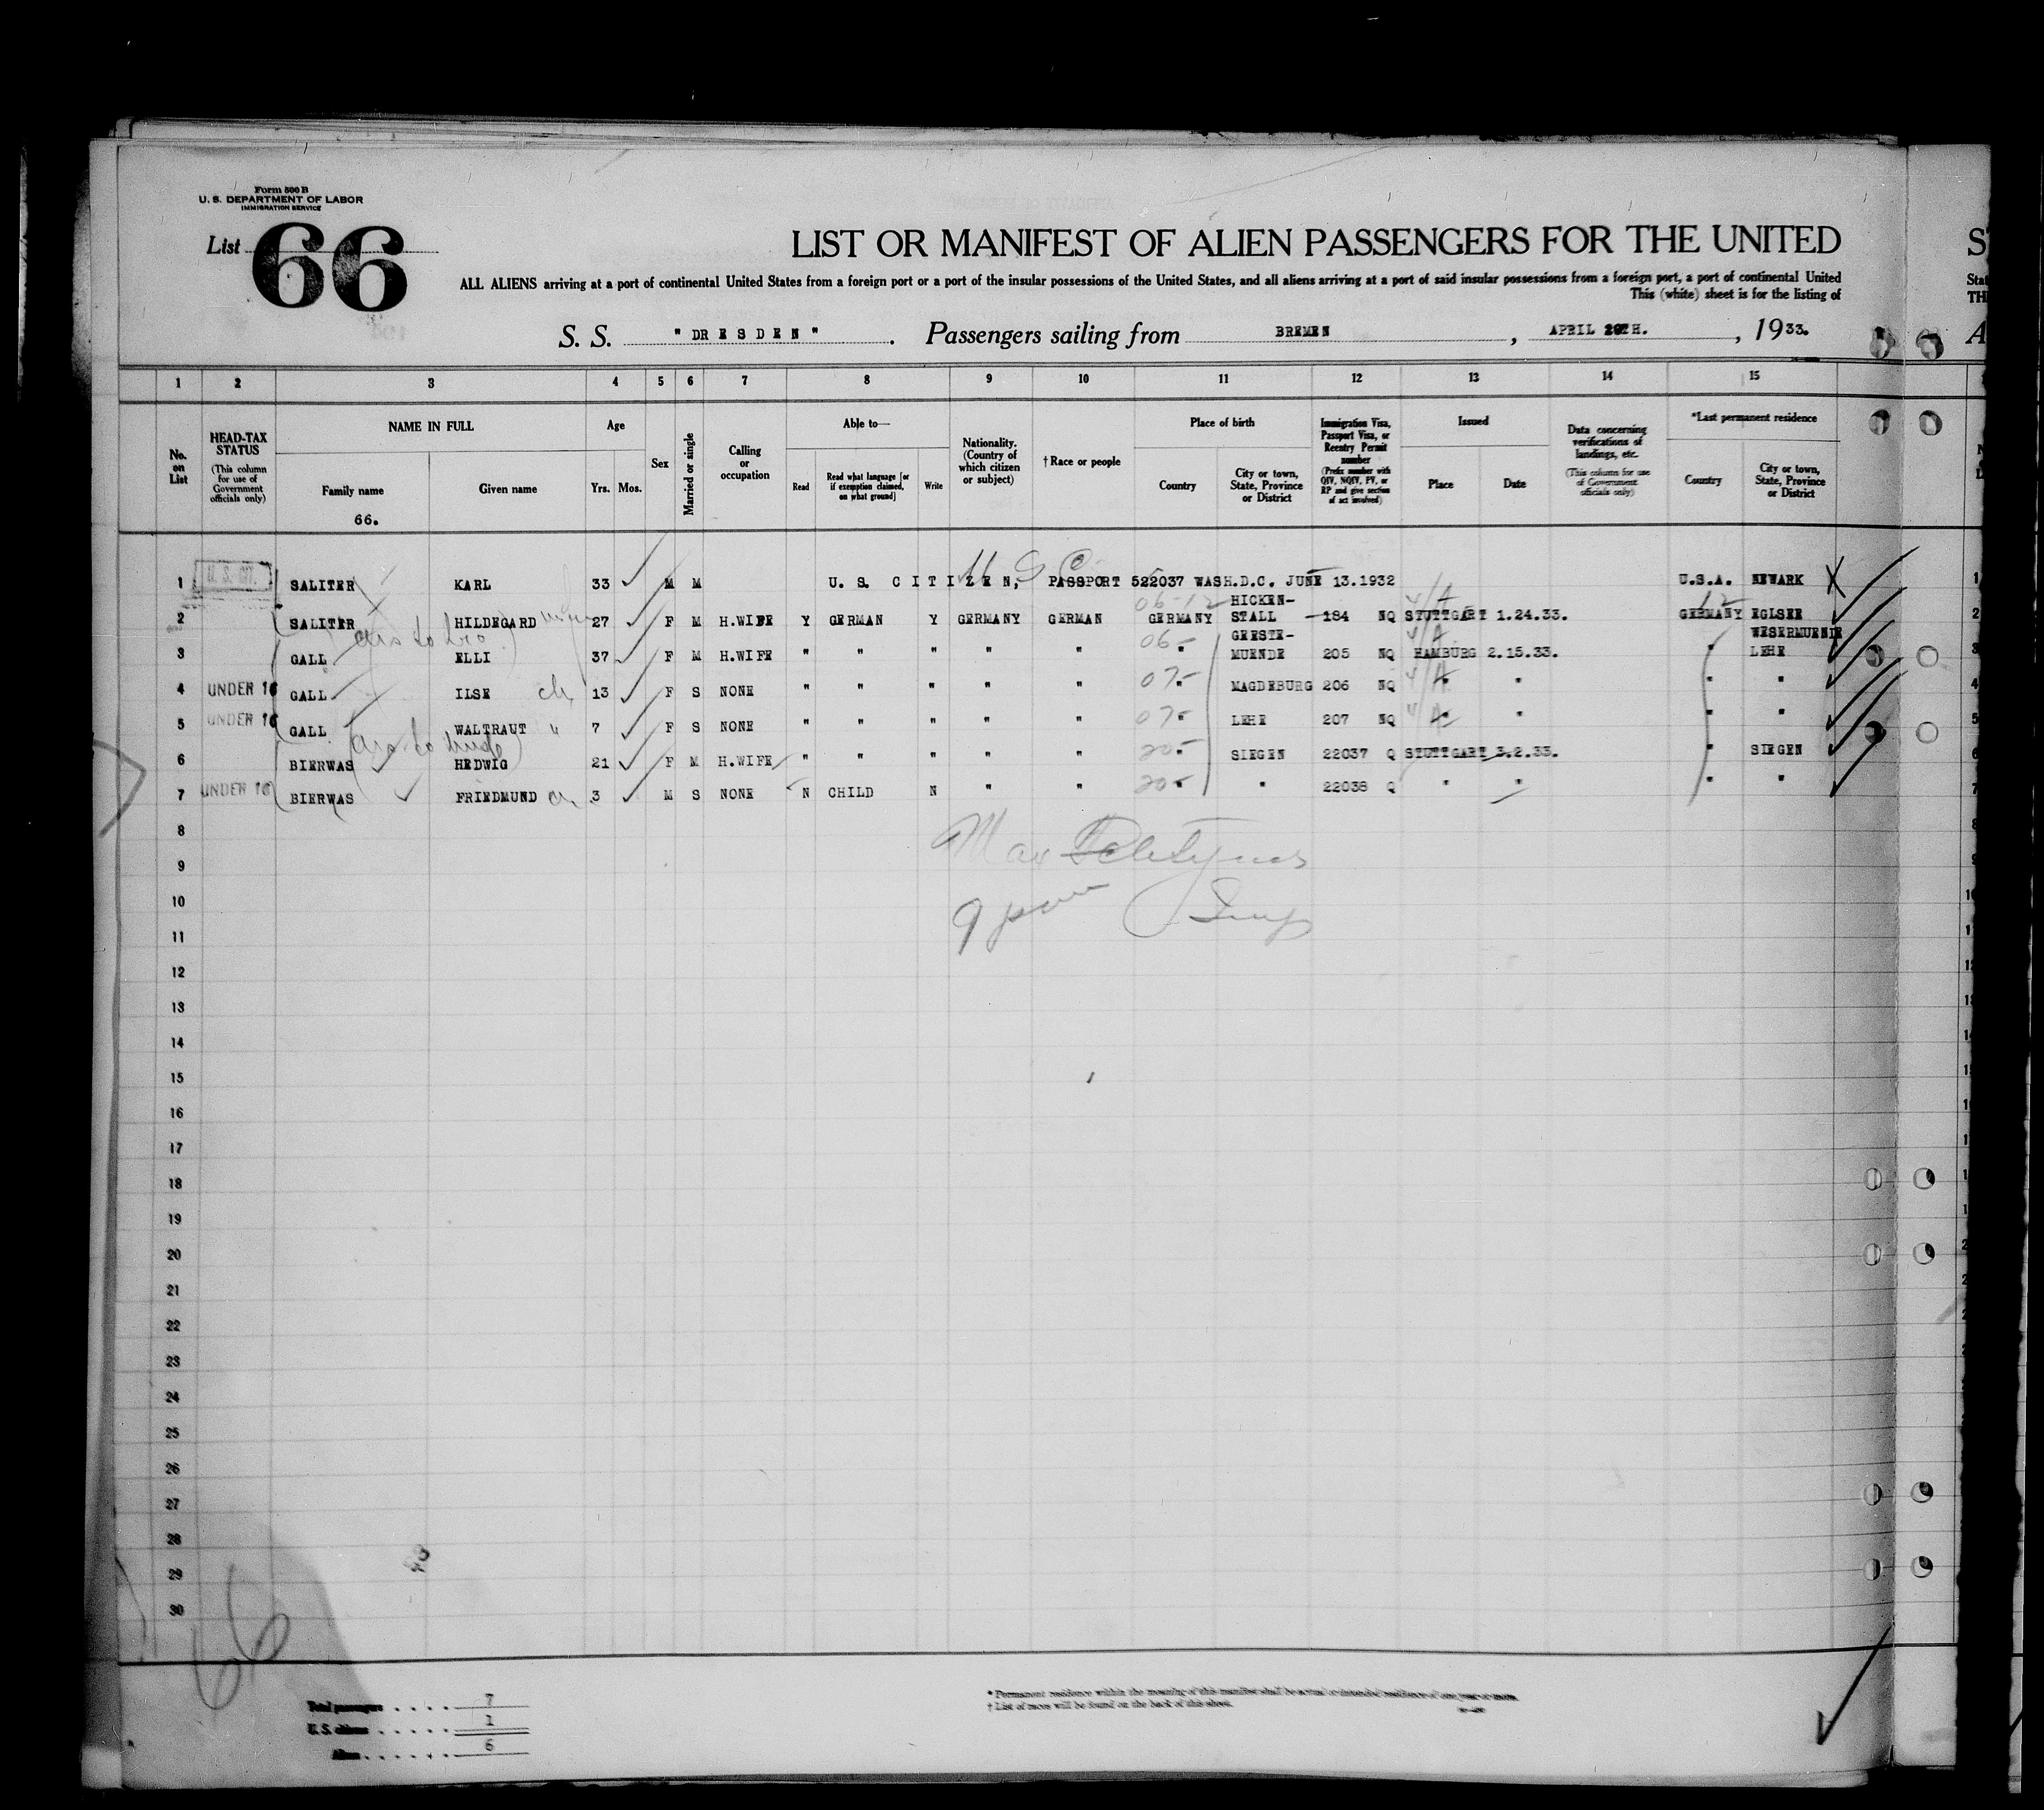 Form 500 B
U. S. DEPARTMENT OF LABOR
IMMIGRATION SERVICE
List 66
LIST OR MANIFEST OF ALIEN PASSENGERS FOR THE UNITED
ALL ALIENS arriving at a port of continental United States from a foreign port or a port of the insular possessions of the United States, and all aliens arriving at a port of said insular possessions from a foreign port, a port of continental United
This (white) sheet is for the listing of
S. S. " DRESDEN " . Passengers sailing from BREMEN , APRIL TH. , 1933.
1 2 3 4 5 6 7 8 9 10 11 12 13 14 15
No. on List
HEAD-TAX STATUS (This column for use of Government officials only)
NAME IN FULL
Family name
Given name
66.
Age
Yrs. Mos.
Sex
Married or single
Calling or occupation
Able to—
Read
Read what language [or if exemption claimed, on what ground]
Write
Nationality. (Country of which citizen or subject)
†Race or people
Place of birth
Country
City or town, State, Province or District
Immigration Visa, Passport Visa, or Reentry Permit number (Prefix number with QIV, NQIV, PV, or RP and give section of act involved)
Issued
Place
Date
Data concerning verifications of landings, etc. (This column for use of Government officials only)
*Last permanent residence
Country
City or town, State, Province or District
1 U. S. CIT. SALITER KARL 33 M M U. S. CITIZEN, PASSPORT 522037 WASH.D.C. JUNE 13.1932 U.S.A. NEWARK 1
U S C
06-12 HICKEN- V/A 12
2 SALITER HILDEGARD 27 F M H.WIFE Y GERMAN Y GERMANY GERMAN GERMANY STALL 184 NQ STUTTGART 1.24.33. GERMANY EGLSEE 2
06- GEESTE- V/A WESERMUENDE
3 GALL ELLI 37 F M H.WIFE " " " " " " MUENDE 205 NQ HAMBURG 2.15.33. " LEHE 3
4 UNDER 16 GALL ILSE ch 13 F S NONE " " " " " 07- " MAGDEBURG 206 NQ V/A " " " " 4
5 UNDER 16 GALL WALTRAUT " 7 F S NONE " " " " " 07- " LEHE 207 NQ V/A " " " " 5
6 BIERWAS HEDWIG 21 F M H.WIFE " " " " " 20- " SIEGEN 22037 Q STUTTGART 3.2.33. " SIEGEN 6
7 UNDER 16 BIERWAS FRIEDMUND ch 3 M S NONE N CHILD N " " 20- " " 22038 Q " " " " 7
8
9
10
11
12
13
14
15
16
17
18
19
20
21
22
23
24
25
26
27
28
29
30
66
Total passengers . . . . 7
U. S. citizens . . . . . 1
Aliens . . . . . . 6
* Permanent residence within the meaning of this manifest shall be actual or intended residence of one year or more.
† List of races will be found on the back of this sheet.